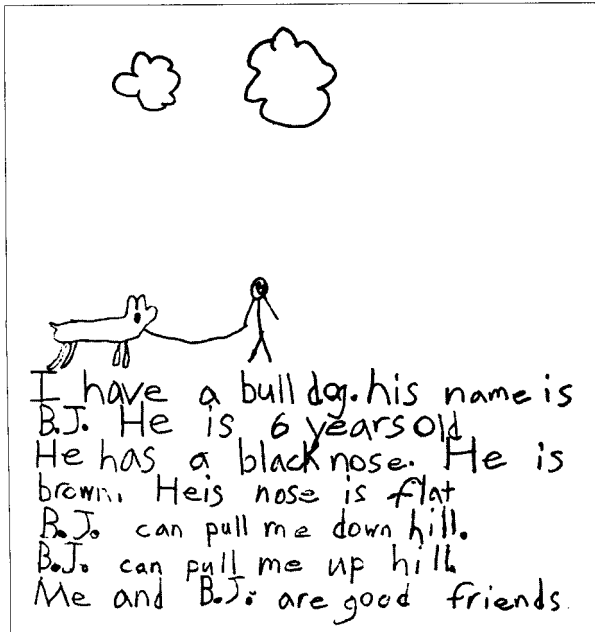 I have a bull dog. his name is
B.J. He is 6 years old
He has a black nose. He is
brown. Heis nose is flat
B.J. can pull me down hill.
B.J. can pull me up hill.
Me and B.J. are good friends.